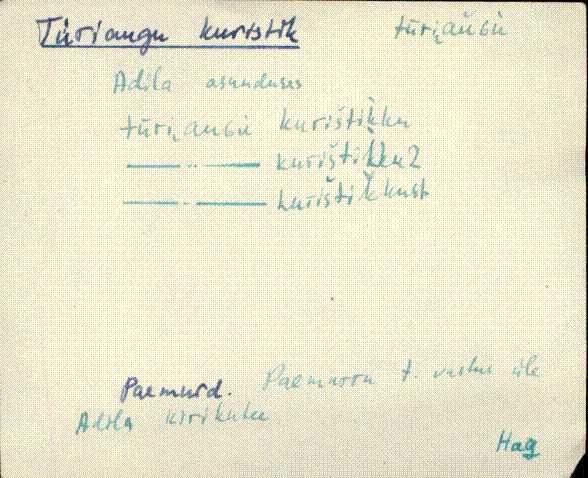 Türiaugu kuristik türi̯aùɢù
Adila asunduses
türi̯aùɢù kurištik̀ku
—— " —— kurištik̀ku2
—— " —— kurištik̆kust
Paemurd. Paemurru t. vastas üle
Adila kirikutee
Hag